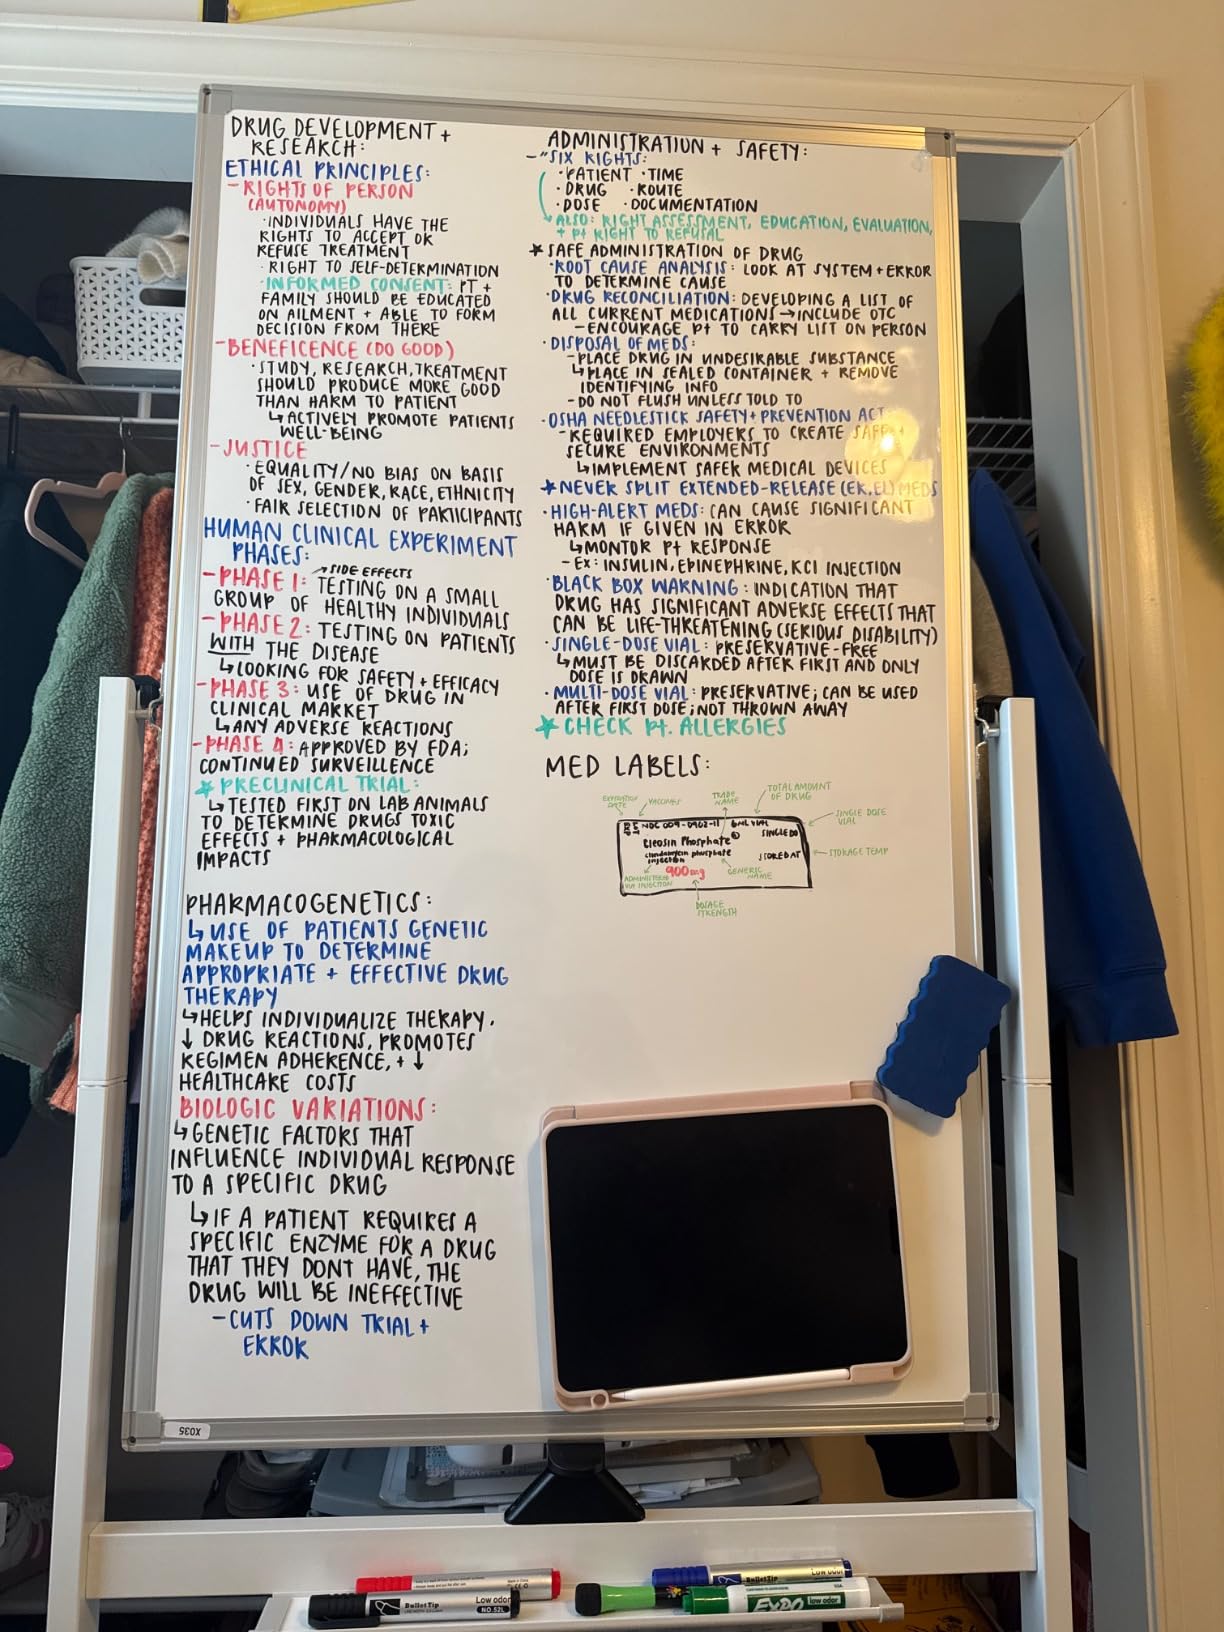 DRUG DEVELOPMENT +
RESEARCH:
ETHICAL PRINCIPLES:
- RIGHTS OF PERSON
(AUTONOMY)
· INDIVIDUALS HAVE THE
RIGHTS TO ACCEPT OR
REFUSE TREATMENT
· RIGHT TO SELF-DETERMINATION
· INFORMED CONSENT: PT +
FAMILY SHOULD BE EDUCATED
ON AILMENT + ABLE TO FORM
DECISION FROM THERE
- BENEFICENCE (DO GOOD)
· STUDY, RESEARCH, TREATMENT
SHOULD PRODUCE MORE GOOD
THAN HARM TO PATIENT
↳ ACTIVELY PROMOTE PATIENTS
WELL-BEING
- JUSTICE
· EQUALITY/NO BIAS ON BASIS
OF SEX, GENDER, RACE, ETHNICITY
· FAIR SELECTION OF PARTICIPANTS
HUMAN CLINICAL EXPERIMENT
PHASES:
→ SIDE EFFECTS
- PHASE 1: TESTING ON A SMALL
GROUP OF HEALTHY INDIVIDUALS
- PHASE 2: TESTING ON PATIENTS
WITH THE DISEASE
↳ LOOKING FOR SAFETY + EFFICACY
- PHASE 3: USE OF DRUG IN
CLINICAL MARKET
↳ ANY ADVERSE REACTIONS
- PHASE 4: APPROVED BY FDA;
CONTINUED SURVEILLENCE
★ PRECLINICAL TRIAL:
↳ TESTED FIRST ON LAB ANIMALS
TO DETERMINE DRUGS TOXIC
EFFECTS + PHARMACOLOGICAL
IMPACTS
PHARMACOGENETICS:
↳ USE OF PATIENTS GENETIC
MAKEUP TO DETERMINE
APPROPRIATE + EFFECTIVE DRUG
THERAPY
↳ HELPS INDIVIDUALIZE THERAPY,
↓ DRUG REACTIONS, PROMOTES
REGIMEN ADHERENCE, + ↓
HEALTHCARE COSTS
BIOLOGIC VARIATIONS:
↳ GENETIC FACTORS THAT
INFLUENCE INDIVIDUAL RESPONSE
TO A SPECIFIC DRUG
↳ IF A PATIENT REQUIRES A
SPECIFIC ENZYME FOR A DRUG
THAT THEY DONT HAVE, THE
DRUG WILL BE INEFFECTIVE
- CUTS DOWN TRIAL +
ERROR
ADMINISTRATION + SAFETY:
- "SIX RIGHTS:
· PATIENT · TIME
· DRUG · ROUTE
· DOSE · DOCUMENTATION
ALSO: RIGHT ASSESSMENT, EDUCATION, EVALUATION,
+ Pt RIGHT TO REFUSAL
★ SAFE ADMINISTRATION OF DRUG
· ROOT CAUSE ANALYSIS: LOOK AT SYSTEM + ERROR
TO DETERMINE CAUSE
· DRUG RECONCILIATION: DEVELOPING A LIST OF
ALL CURRENT MEDICATIONS → INCLUDE OTC
- ENCOURAGE Pt TO CARRY LIST ON PERSON
· DISPOSAL OF MEDS:
- PLACE DRUG IN UNDESIRABLE SUBSTANCE
↳ PLACE IN SEALED CONTAINER + REMOVE
IDENTIFYING INFO
- DO NOT FLUSH UNLESS TOLD TO
· OSHA NEEDLESTICK SAFETY + PREVENTION ACT
- REQUIRED EMPLOYERS TO CREATE SAFE +
SECURE ENVIRONMENTS
↳ IMPLEMENT SAFER MEDICAL DEVICES
★ NEVER SPLIT EXTENDED-RELEASE (ER, EL) MEDS
· HIGH-ALERT MEDS: CAN CAUSE SIGNIFICANT
HARM IF GIVEN IN ERROR
↳ MONTOR Pt RESPONSE
- EX: INSULIN, EPINEPHRINE, KCl INJECTION
· BLACK BOX WARNING: INDICATION THAT
DRUG HAS SIGNIFICANT ADVERSE EFFECTS THAT
CAN BE LIFE-THREATENING (SERIOUS DISABILITY)
· SINGLE-DOSE VIAL: PRESERVATIVE-FREE
↳ MUST BE DISCARDED AFTER FIRST AND ONLY
DOSE IS DRAWN
· MULTI-DOSE VIAL: PRESERVATIVE; CAN BE USED
AFTER FIRST DOSE; NOT THROWN AWAY
★ CHECK Pt. ALLERGIES
MED LABELS:
EXPIRATION DATE
VACCINES
TRADE NAME
TOTAL AMOUNT
OF DRUG
SINGLE DOSE
VIAL
STORAGE TEMP
SINGLE DO
Cleosin Phosphate®
clindamycin phosphate
injection
STORED AT
900mg
GENERIC
NAME
ADMINISTER
VIA INJECTION
DOSAGE
STRENGTH
X035
BulletTip
Low odor
NO.52L
BulletTip
Low odor
EXPO
low odor